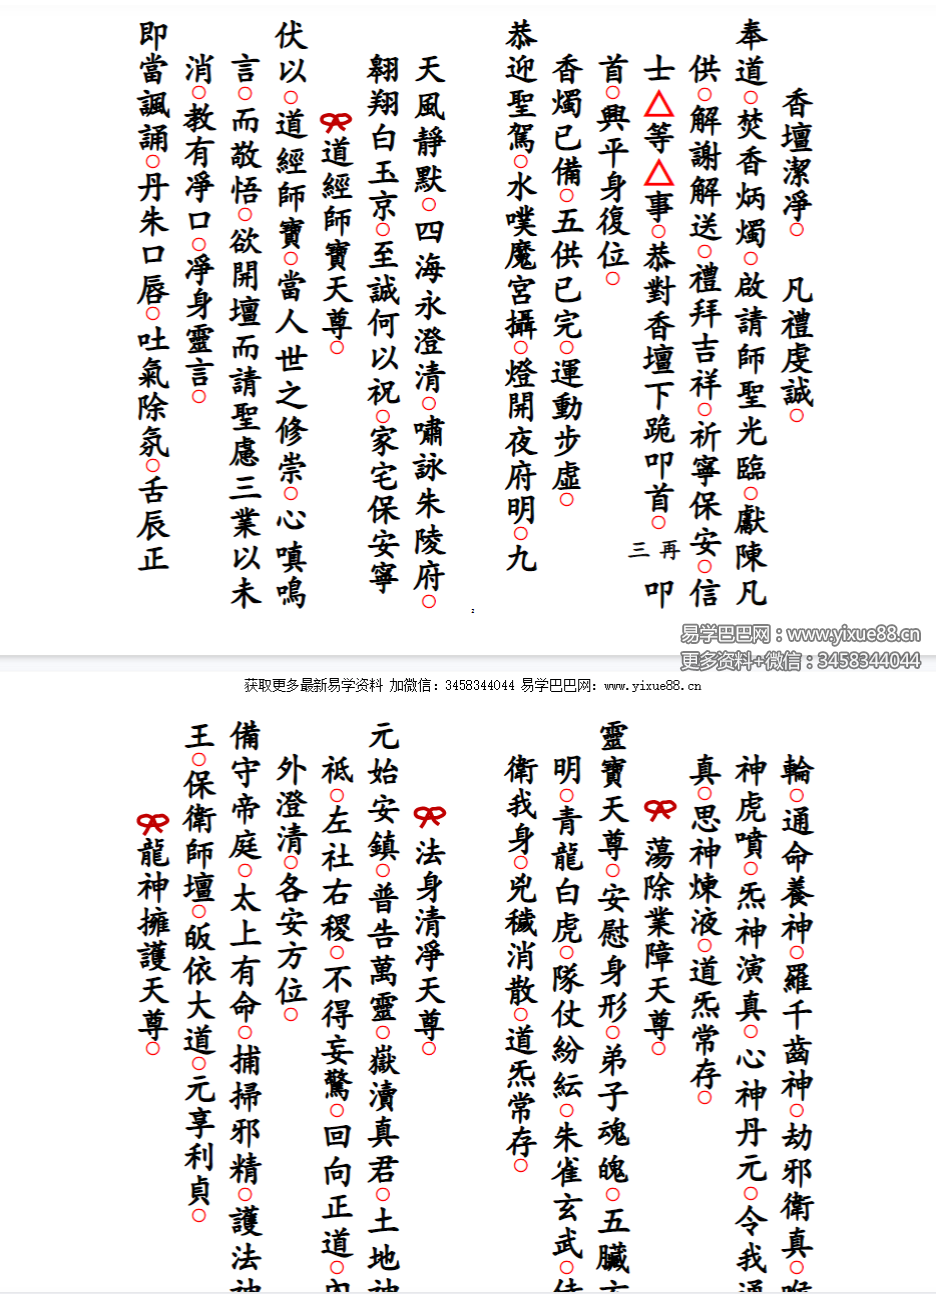 香壇潔淨○　凡禮虔誠○
奉道○焚香炳燭○啟請師聖光臨○獻陳凡
供○解謝解送○禮拜吉祥○祈寧保安○信
士△等△事○恭對香壇下跪叩首○再三叩
首○興平身復位○
香燭已備○五供已完○運動步虛○
恭迎聖駕○水噗魔宮攝○燈開夜府明○九
天風靜默○四海永澄清○嘯詠朱陵府○
翱翔白玉京○至誠何以祝○家宅保安寧
道經師寶天尊○
伏以○道經師寶○當人世之修崇○心嗔鳴
言○而敬悟○欲開壇而請聖慮三業以未
消○教有凈口○凈身靈言○
即當諷誦○丹朱口唇○吐氣除氛○舌辰正
易学巴巴网：www.yixue88.cn
更多资料+微信：3458344044
获取更多最新易学资料 加微信：3458344044 易学巴巴网：www.yixue88.cn
輪○通命養神○羅千齒神○劫邪衛真○喉
神虎噴○炁神演真○心神丹元○令我通
真○思神煉液○道炁常存○
蕩除業障天尊○
靈寶天尊○安慰身形○弟子魂魄○五臟玄
明○青龍白虎○隊仗紛紜○朱雀玄武○侍
衛我身○兇穢消散○道炁常存○
法身清淨天尊○
元始安鎮○普告萬靈○嶽瀆真君○土地神
祇○左社右稷○不得妄驚○回向正道○內
外澄清○各安方位○
備守帝庭○太上有命○捕掃邪精○護法神
王○保衛師壇○皈依大道○元享利貞○
龍神擁護天尊○